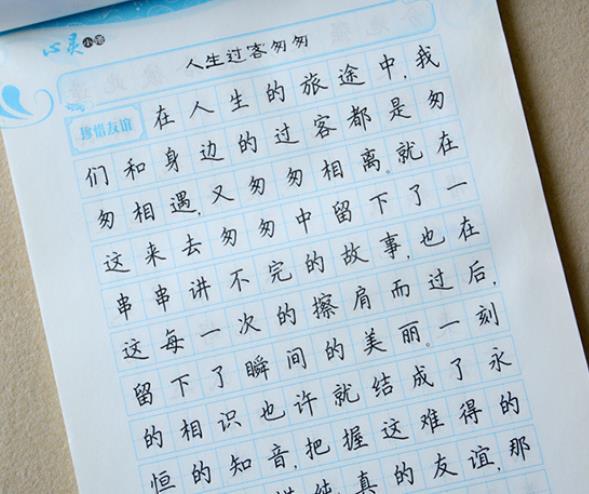 心灵小笺
人生过客匆匆
珍惜友谊
在人生的旅途中,我
们和身边的过客都是匆
匆相遇,又匆匆相离。就在
这来去匆匆中留下了一
串串讲不完的故事,也在
这每一次的擦肩而过后,
留下了瞬间的美丽。一刻
的相识也许就结成了永
恒的知音,把握这难得的
纯真的友谊,那